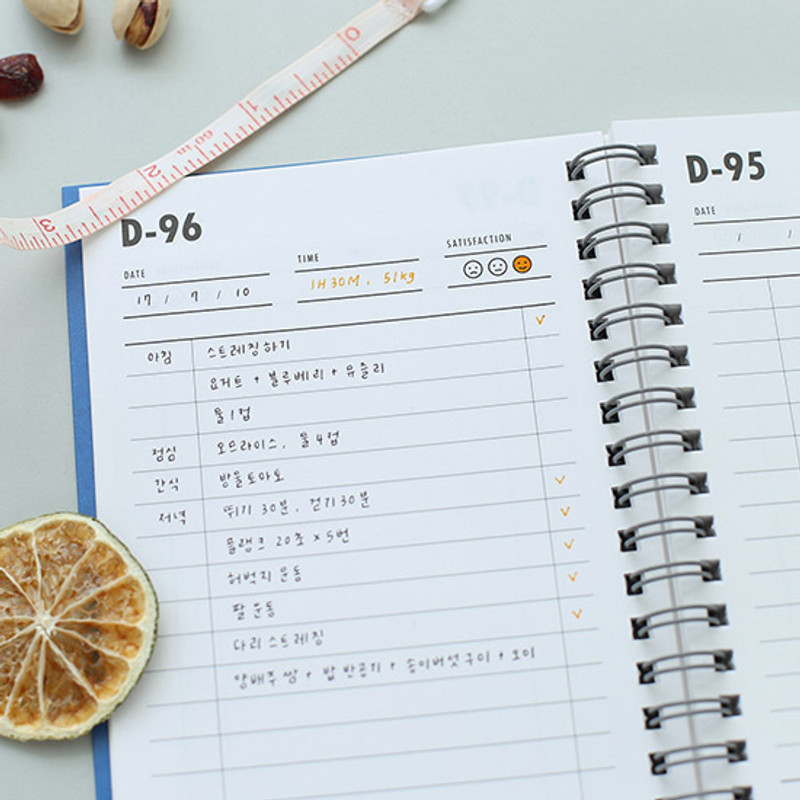 0
1
60in
2
3
D-96
D-95
DATE
TIME
SATISFACTION
DATE
17 / 7 / 10
1H 30M, 51kg
/ /
아침 스트레칭하기 ✓
요거트 + 블루베리 + 뮤즐리
물 1컵
점심 오므라이스, 물 4컵
간식 방울토마토
저녁 뛰기 30분, 걷기 30분 ✓
플랭크 20초 x 5번 ✓
허벅지 운동 ✓
팔 운동 ✓
다리 스트레칭 ✓
양배추 쌈 + 밥 반공기 + 송이버섯구이 + 오이